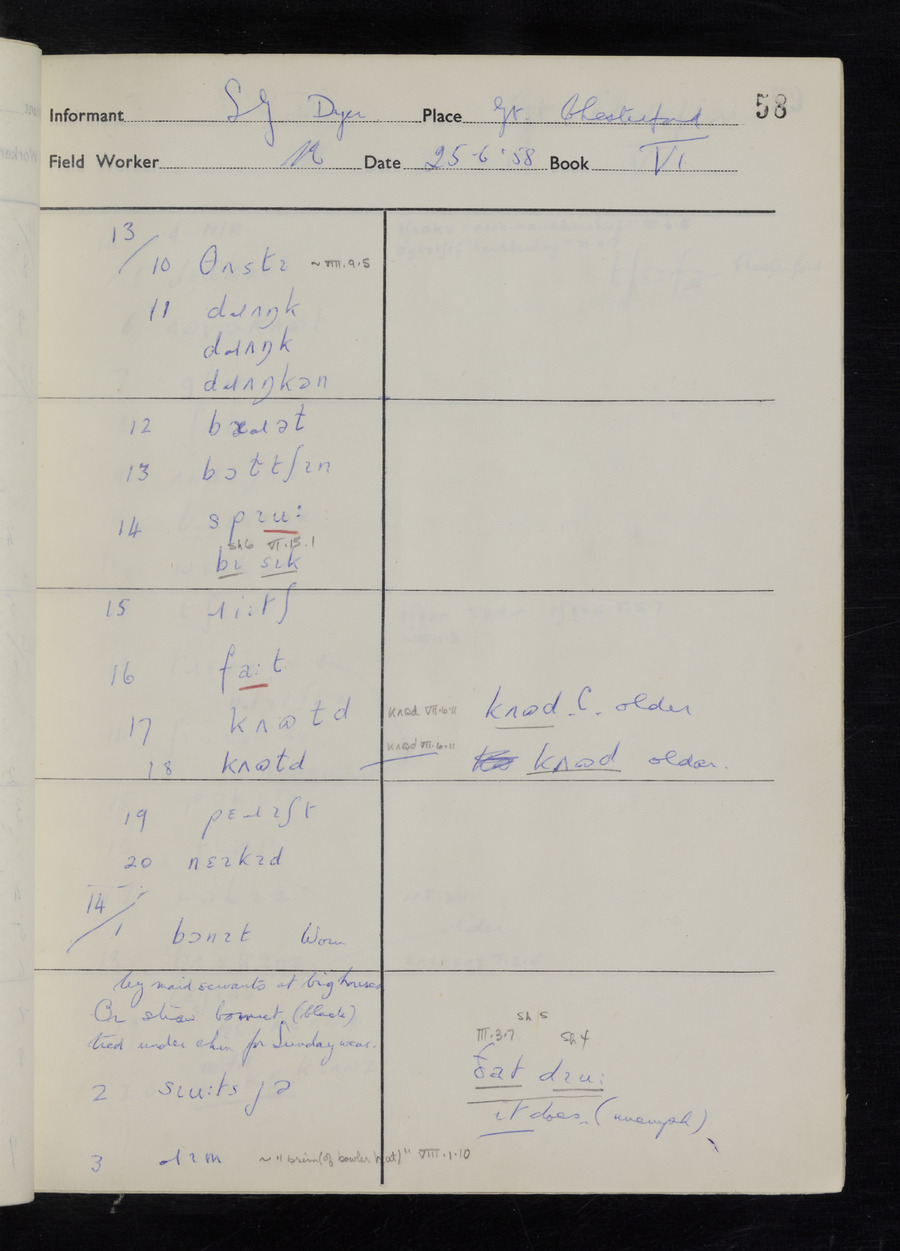 Informant S J Dyer Place Gt. Chesterford 58
Field Worker Date 25·6·'58 Book VI
13
10 θʌstɪ ~ VIII.9.5
11 dɹʌŋk
dɹʌŋk
dɹʌŋkən
12 bæɹət
13 bɔttʃɪn
14 spɪu:
sh6 VI.13.1
bɪ sɪk
15 ɹi:tʃ
16 fa:t
17 knɷtd knɷd VII.6.11 knɷd . C. older
18 knɷtd knɷd VII.6.11 knɷd older.
19 pɛɹɪʃt
20 nɛɪkɪd
14
1 bɔnɪt Worn
by maid servants at big houses
Or straw bonnet (black)
tied under chin for Sunday wear.
2 sɪu:ts jə
sh 5
III.3.7 sh 4
ðat dɪu:
it does. (unemph)
3 ɹɪm ~ "brim (of bowler hat)" VIII.1.10